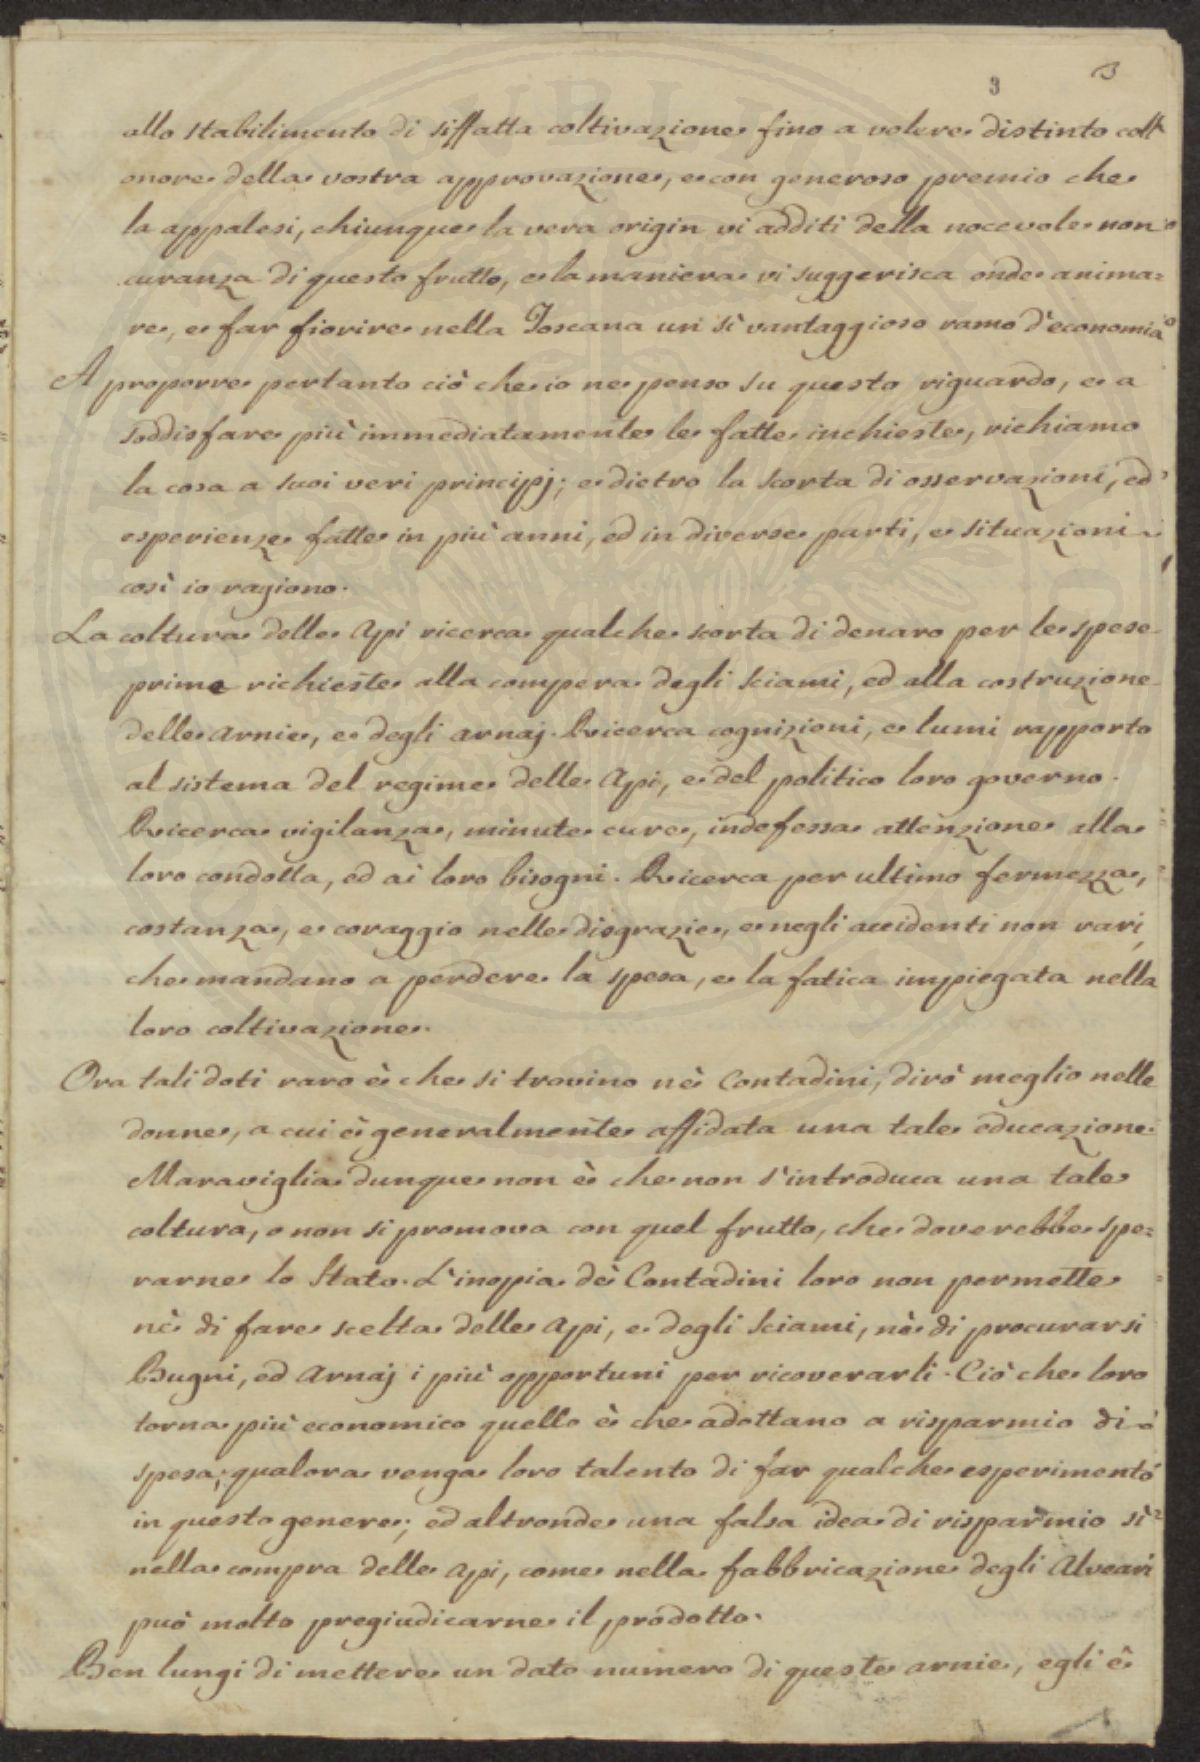 3 3
allo stabilimento di siffatta coltivazione fino a volere distinto coll'
onore della vostra approvazione, e con generoso premio che
la appalesi, chiunque la vera origin vi additi della nocevole non
curanza di questo frutto, e la maniera vi suggerisca onde anima=
re, e far fiorire nella Toscana un sì vantaggioso ramo d'economia
A proporre pertanto ciò che io ne penso su questo riguardo, e a
soddisfare più immediatamente le fatte inchieste, richiamo
la cosa a suoi veri principj; e dietro la scorta di osservazioni, ed
esperienze fatte in più anni, ed in diverse parti, e situazioni
così io ragiono.
La coltura delle Api ricerca qualche scorta di denaro per le spese
prime richieste alla compera degli Sciami, ed alla costruzione
delle Arnie, e degli Arnaj. Ricerca cognizioni, e lumi rapporto
al sistema del regime delle Api, e del politico loro governo.
Ricerca vigilanza, minute cure, indefessa attenzione alla
loro condotta, ed ai loro bisogni. Ricerca per ultimo fermezza,
costanza, e coraggio nelle disgrazie, e negli accidenti non rari,
che mandano a perdere la spesa, e la fatica impiegata nella
loro coltivazione.
Ora tali doti raro è che si trovino nè Contadini, dirò meglio nelle
donne, a cui è generalmente affidata una tale educazione.
Maraviglia dunque non è che non s'introduca una tale
coltura, o non si promova con quel frutto, che doverebbe spe=
rarne lo Stato. L'inopia dè Contadini loro non permette
nè di fare scelta delle Api, e degli Sciami, nè di procurarsi
Bugni, ed Arnaj i più opportuni per ricoverarli. Ciò che loro
torna più economico quello è che adottano a risparmio di
spesa; qualora venga loro talento di far qualche esperimento
in questo genere; ed altronde una falsa idea di risparmio sì
nella compra delle Api, come nella fabbricazione degli Alveari
può molto pregiudicarne il prodotto.
Ben lungi di mettere un dato numero di queste arnie, egli è